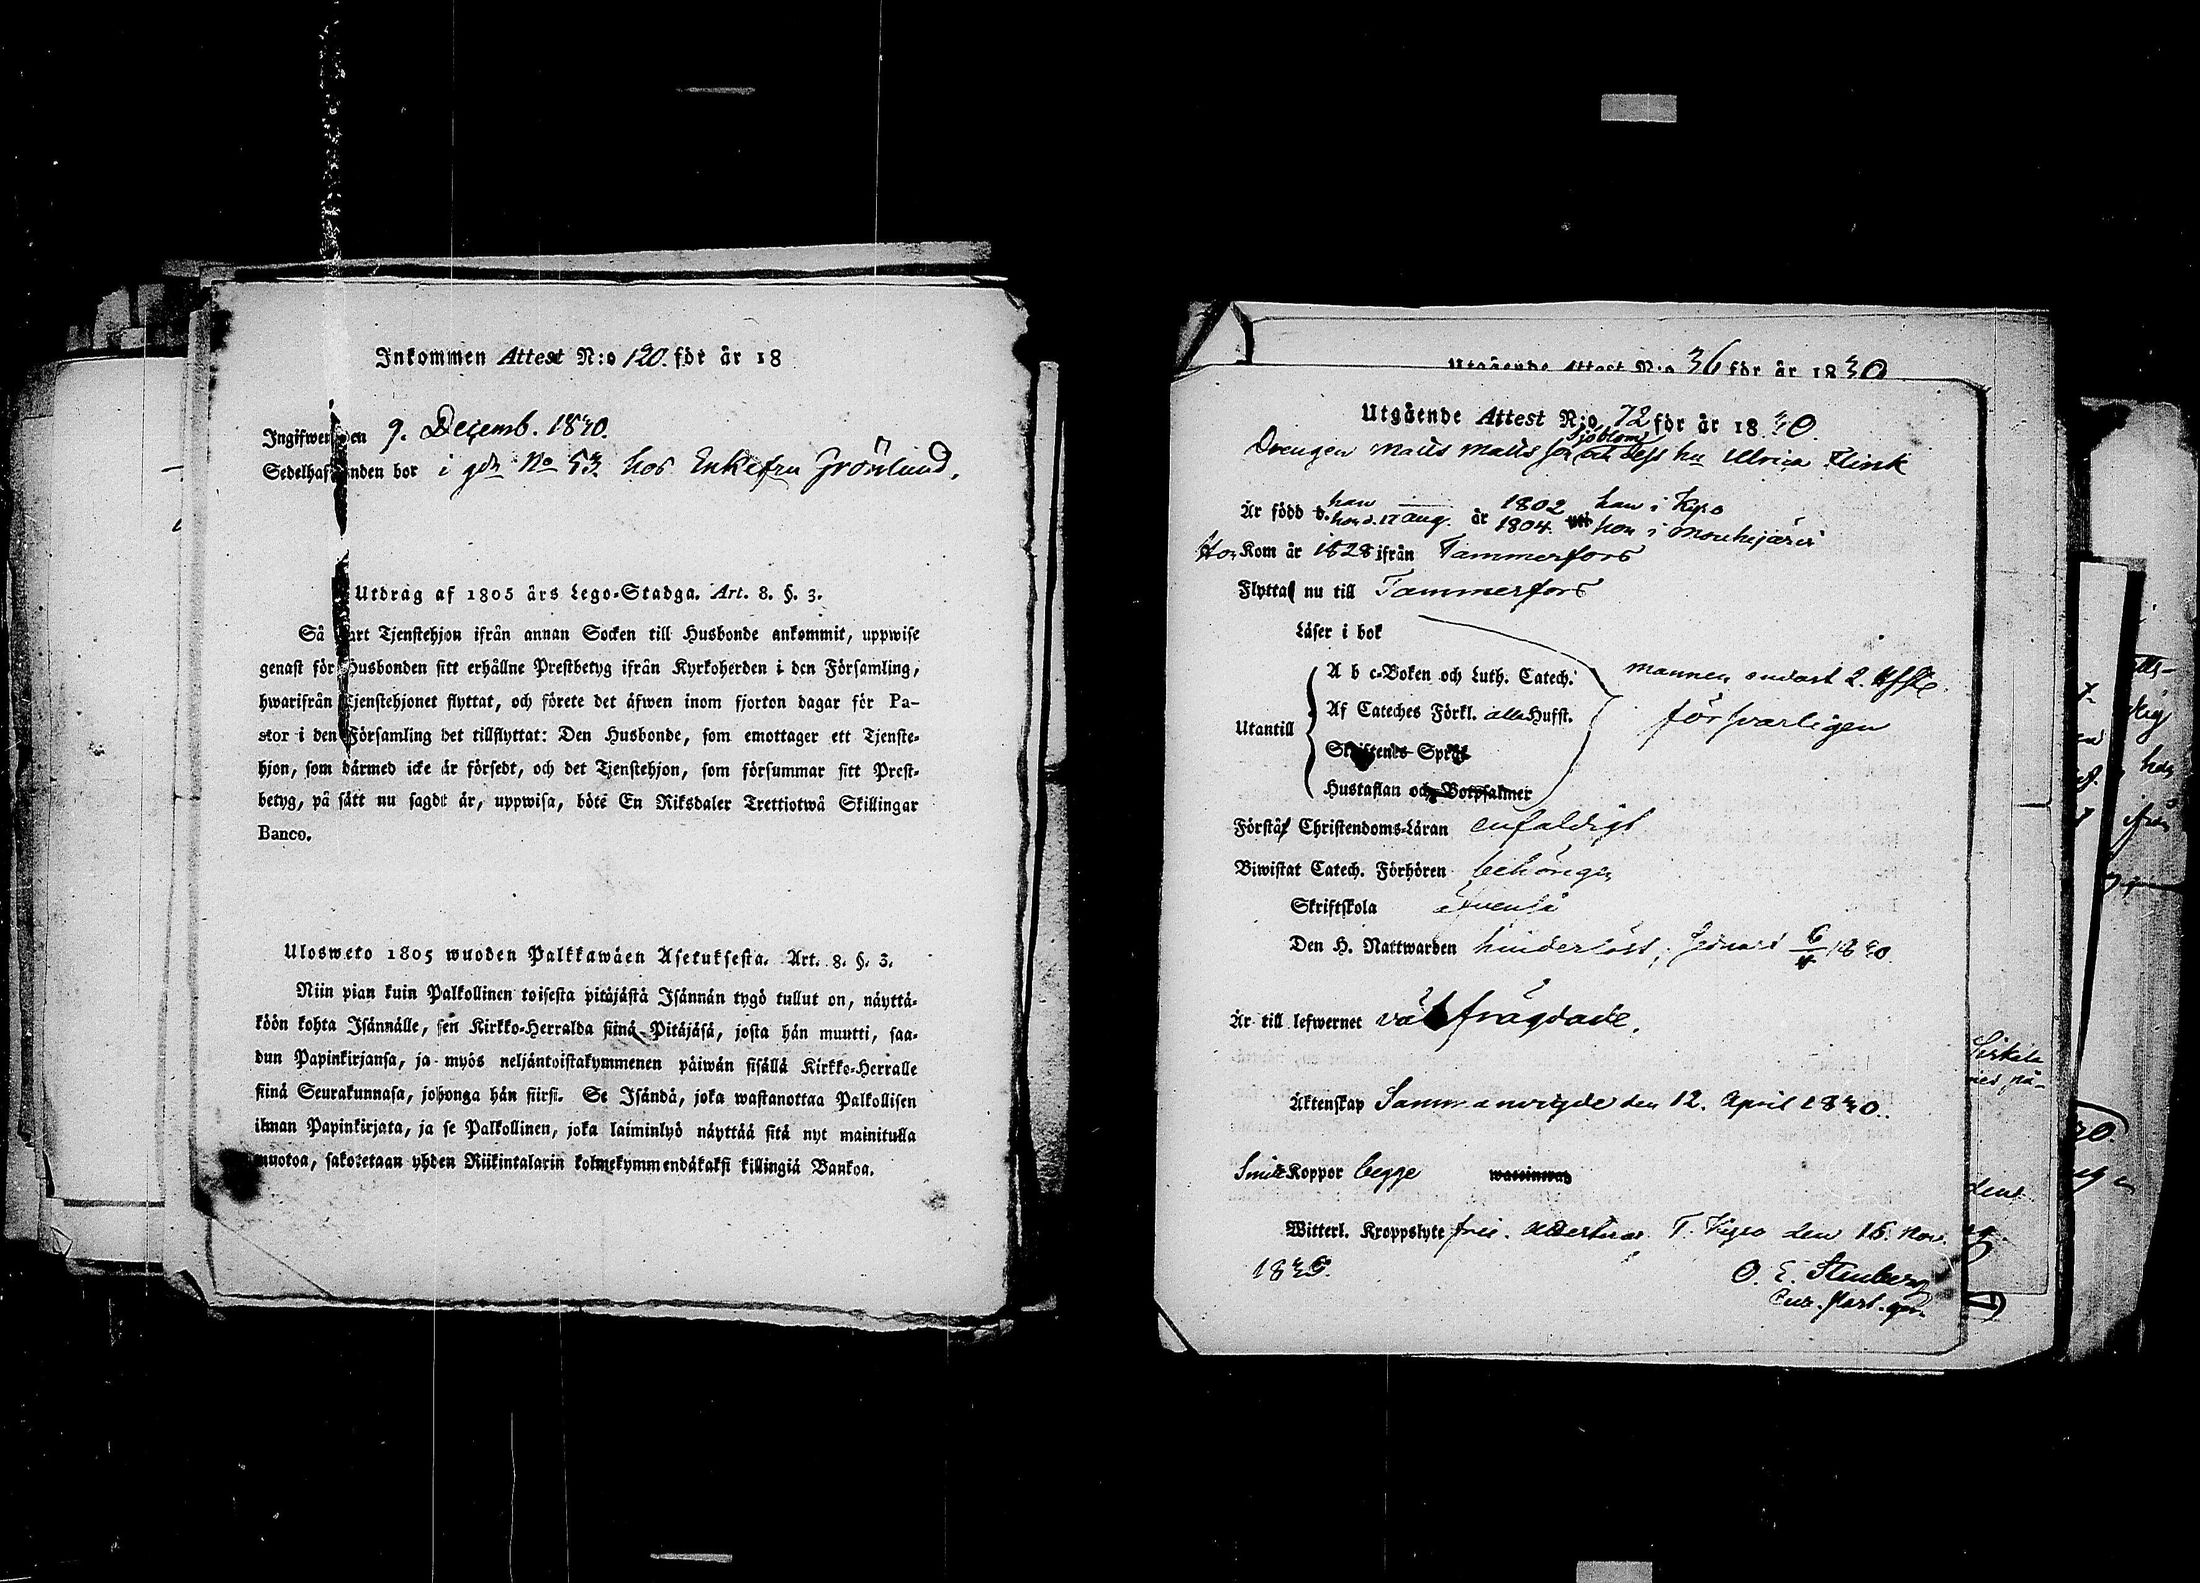 Inkommen Attest N:o 120. för år 18
Ingifwen den 9. Decemb. 1830.
Sedelhafwanden bor i gdn No 53 hos Enkefru Grönlund.
Utdrag af 1805 års Lego-Stadga. Art. 8. §. 3.
Så snart Tjenstehjon ifrån annan Socken till Husbonde ankommit, uppwise
genast för Husbonden sitt erhållne Prestbetyg ifrån Kyrkoherden i den Församling,
hwarifrån Tjenstehjonet flyttat, och förete det äfwen inom fjorton dagar för Pa-
stor i den Församling det tillflyttat: Den Husbonde, som emottager ett Tjenste-
hjon, som därmed icke är försedt, och det Tjenstehjon, som försummar sitt Prest-
betyg, på sätt nu sagdt är, uppwisa, böte En Riksdaler Trettiotwå Skillingar
Banco.
Ulosweto 1805 wuoden Palkkawäen Asetuksesta. Art. 8. §. 3.
Niin pian kuin Palkollinen toisesta pitäjästä Isännän tygö tullut on, näyttä-
köön kohta Isännälle, sen Kirkko-Herralda siinä Pitäjäsä, josta hän muutti, saa-
dun Papinkirjansa, ja myös neljäntoistakymmenen päiwän sisällä Kirkko-Herralle
siinä Seurakunnasa, johonga hän siirsi. Se Isändä, joka wastanottaa Palkollisen
ilman Papinkirjata, ja se Palkollinen, joka laiminlyö näyttää sitä nyt mainitulla
muotoa, sakotetaan yhden Riikintalarin kolmekymmendäkaksi killingiä Bankoa.
Utgående Attest N:o 36 för år 1830
Utgående Attest N:o 72 för år 1830.
Drengen Matts Matts son Sjöblom och dess hu Ulrica Flink
Är född d. han år 1802 han i Kyro
hon d. 17 aug. 1804. hon i Mouhijärvi
Hon Kom år 1828 ifrån Tammerfors
Flyttat nu till Tammerfors
Läser i bok
Utantill
A b c-Boken och Luth. Catech. mannen endast 2. Hfst.
Af Cateches Förkl. alla Hufst. försvarligen
Skriftenes Språk
Hustaflan och Botpsalmer
Förstår Christendoms-Läran enfaldigt
Biwistat Catech. Förhören behörigen
Skriftskola äfvenså
Den H. Nattwarden hinderlöst, senast 1830.
Är till lefwernet välfrägdade.
Äktenskap Sammanvigde den 12. April 1830.
Smit Koppor begge
Witterl. Kroppslyte fri. Attesteras T. Kyro den 15. Nov.
1830.
O. E. Stenberg